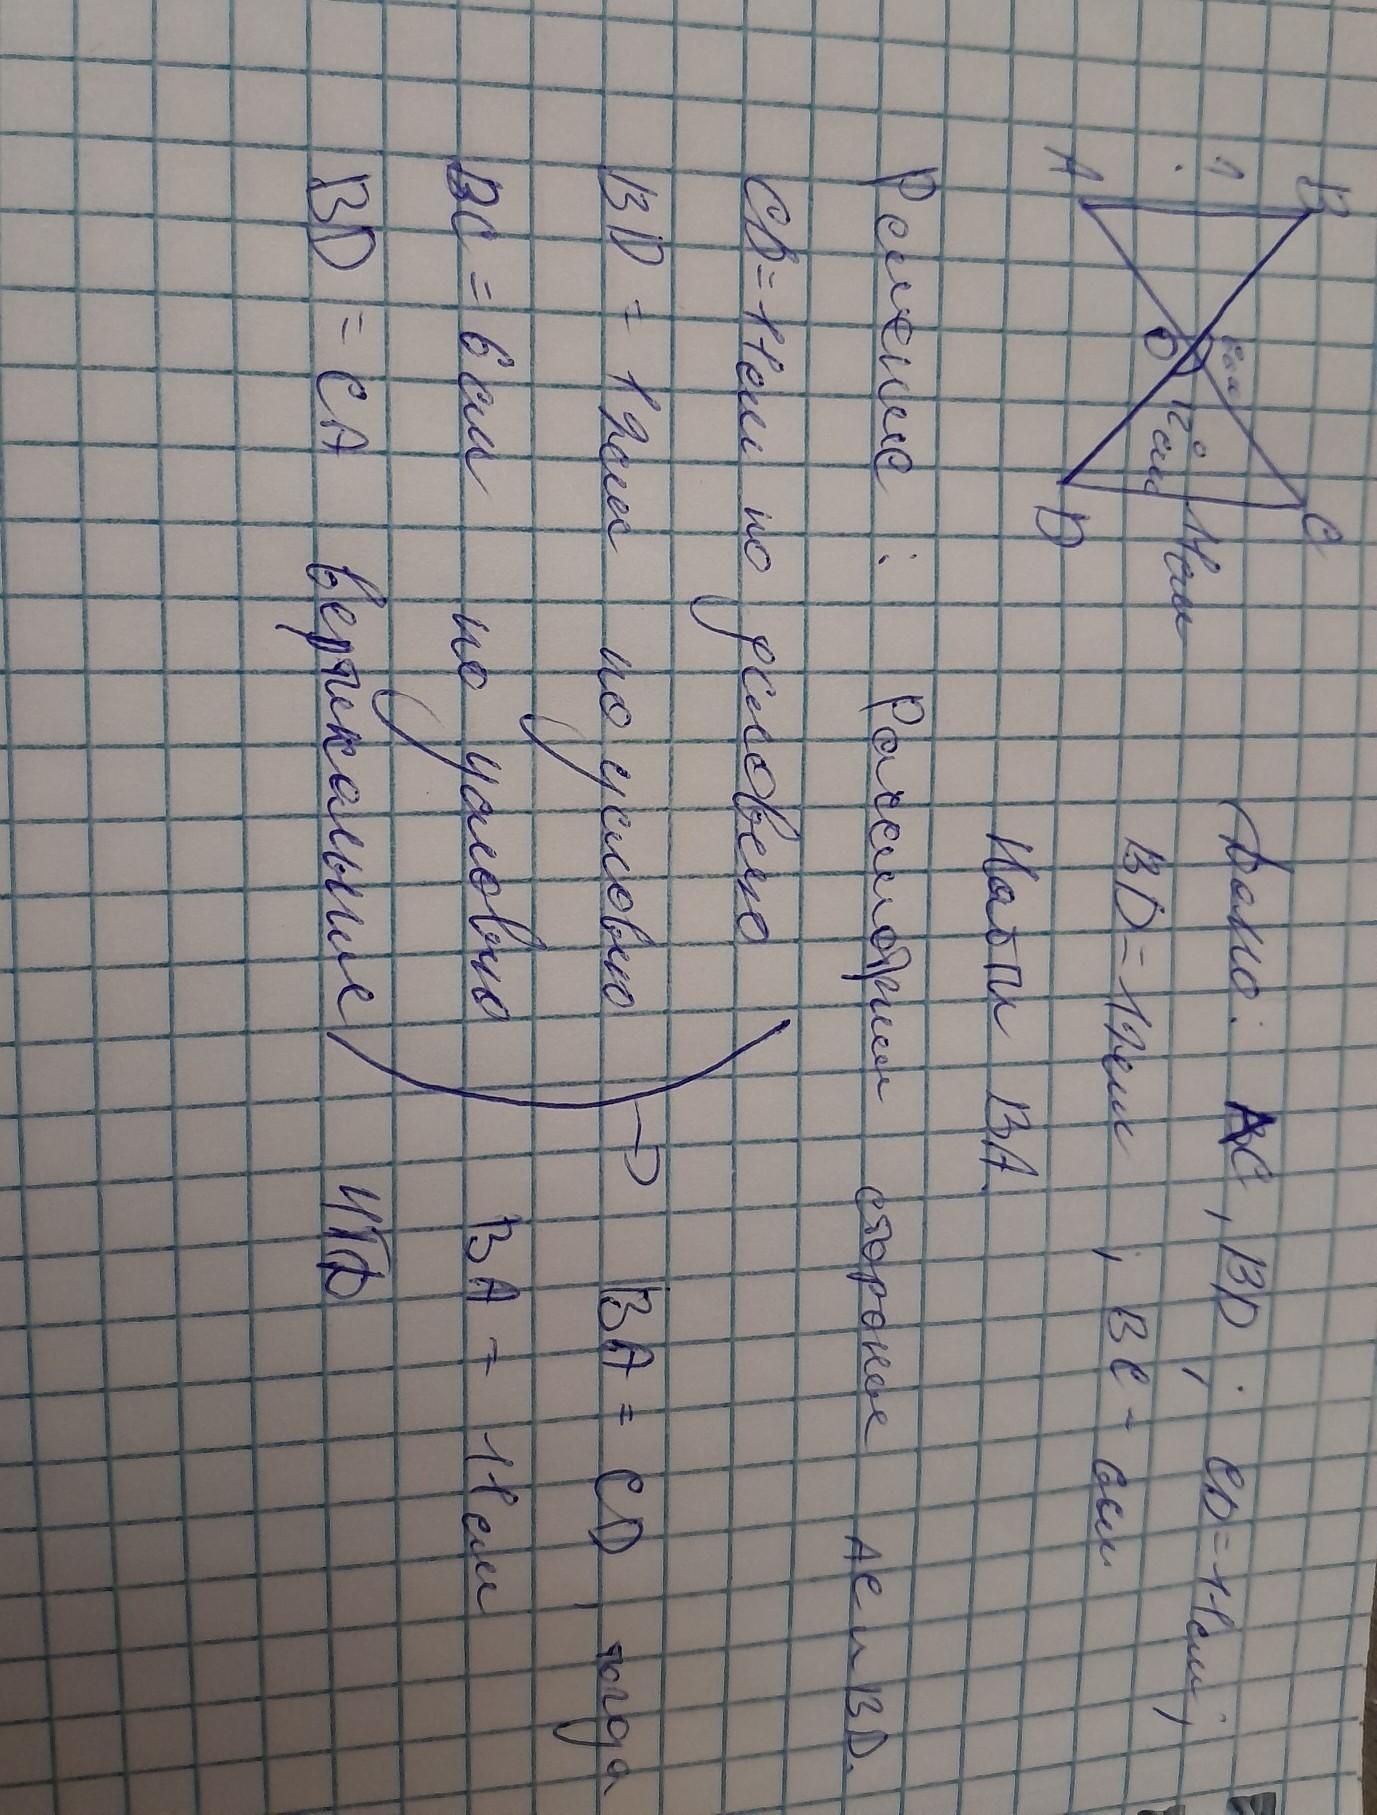 B C
? 6см 14см
O 12см
A D
Дано: AC, BD; CD=14см;
BD=12см; BC-6см
Найти BA.
Решение: Рассмотрим стороные AC и BD.
CD=14см по условею
BD = 12см по условею → BA = CD, тогда
BC = 6см по условею BA = 14см
BD = CA вертикальные ЧТД